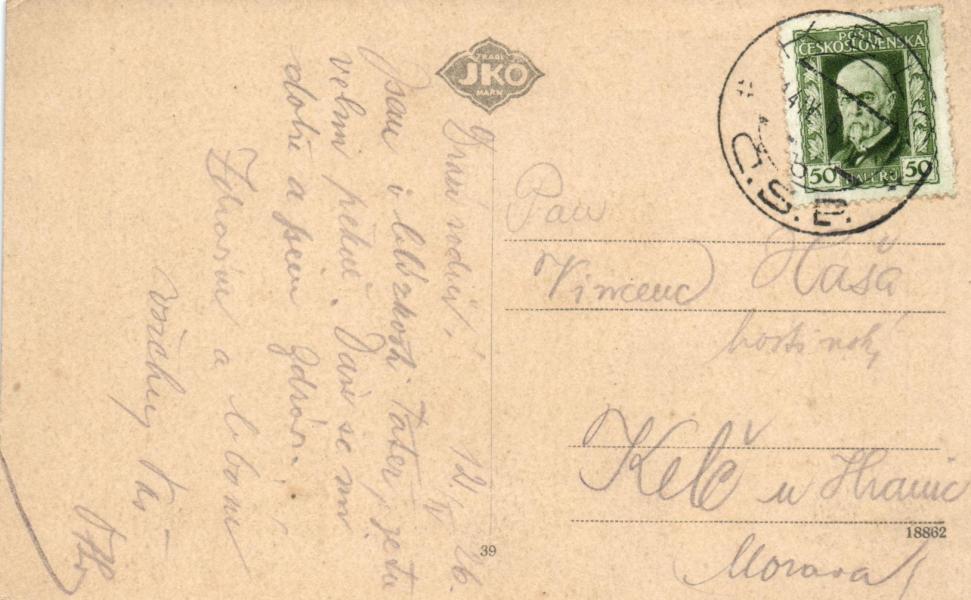 Drazí rodiče, 12/IV 26.
Jsem i blízkosti Tater, je tu
velmi pěkně. Daří se mi
dobře a jsem zdráv.
Zdravím a líbám
všechny Váš
JKO
MARK
POŠTA
ČESKOSLOVENSKÁ
50 HALÉŘŮ 50
Č.S.P.
Pan
Vincenc Haša
hostinský
Kelč u Hranic
Morava
39
18862